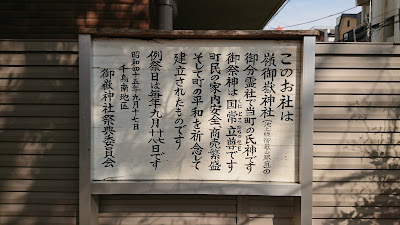 このお社は
嶺御嶽神社の
御分霊社で当町の氏神です
御祭神は国常立尊です
町民の家内安全、商売繁盛
そして町の平和を祈念して
建立されたものです
例祭日は毎年九月十七・十八日です
昭和四十五年九月十七日
千鳥南地区
御嶽神社祭典委員会